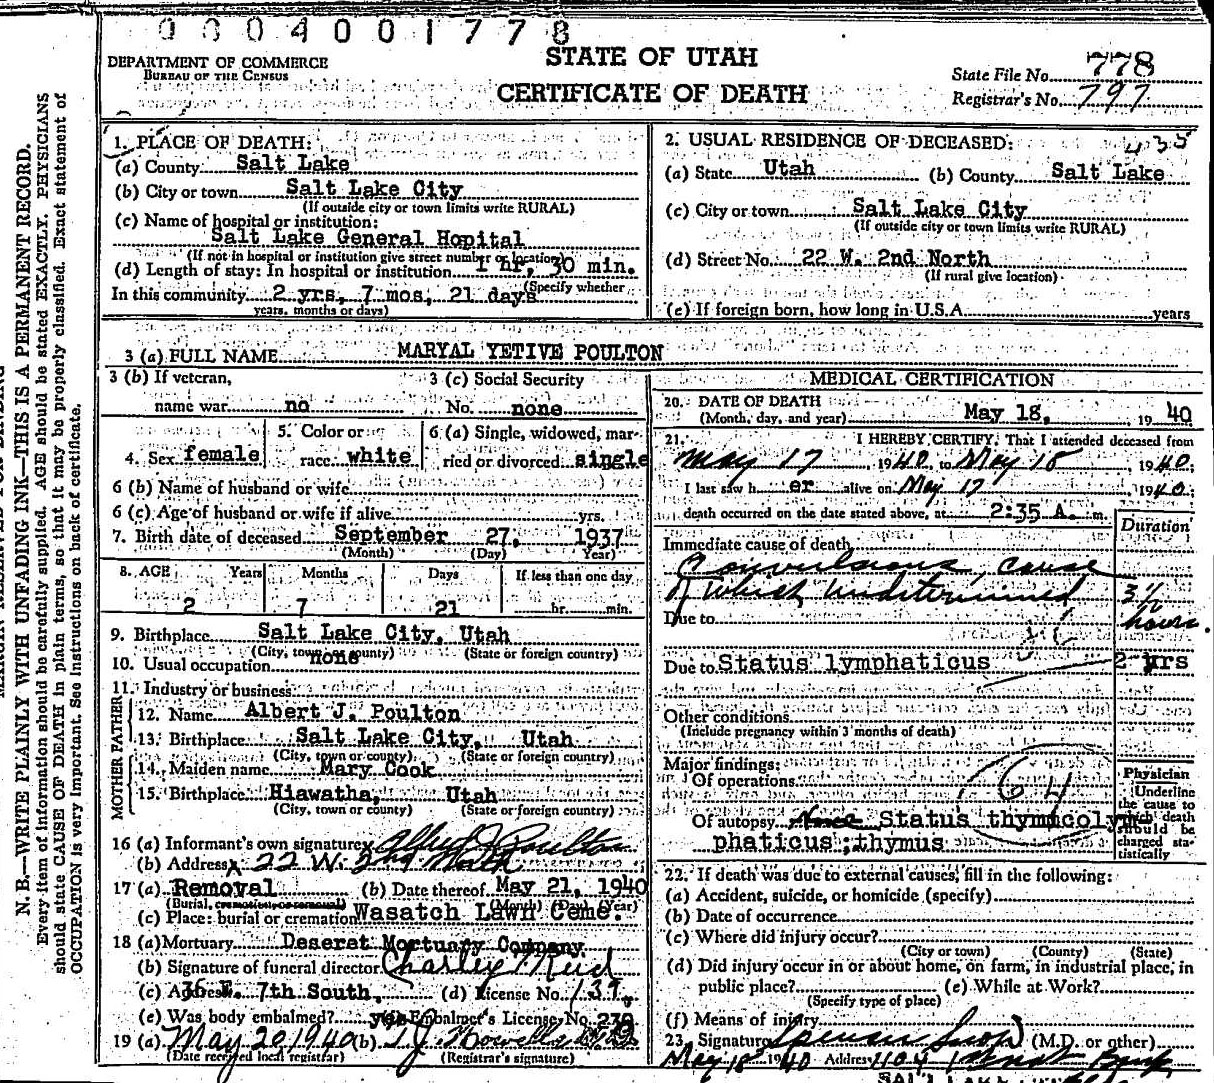 0004001778
DEPARTMENT OF COMMERCE
BUREAU OF THE CENSUS
STATE OF UTAH
CERTIFICATE OF DEATH
State File No. 778
Registrar's No. 797
1. PLACE OF DEATH:
(a) County Salt Lake
(b) City or town Salt Lake City
(If outside city or town limits write RURAL)
(c) Name of hospital or institution:
Salt Lake General Hopital
(If not in hospital or institution give street number or location)
(d) Length of stay: In hospital or institution 1 hr, 30 min.
(Specify whether
In this community 2 yrs, 7 mos, 21 days
years, months or days)
2. USUAL RESIDENCE OF DECEASED: 435
(a) State Utah (b) County Salt Lake
(c) City or town Salt Lake City
(If outside city or town limits write RURAL)
(d) Street No. 22 W. 2nd North
(If rural give location)
(e) If foreign born, how long in U.S.A. years
3 (a) FULL NAME MARYAL YETIVE POULTON
3 (b) If veteran,
name war no
3 (c) Social Security
No. none
4. Sex female
5. Color or
race white
6 (a) Single, widowed, mar-
ried or divorced single
6 (b) Name of husband or wife
6 (c) Age of husband or wife if alive yrs.
7. Birth date of deceased September 27, 1937
(Month) (Day) Year)
8. AGE Years Months Days If less than one day
2 7 21 hr. min.
9. Birthplace Salt Lake City, Utah
(City, town or county) (State or foreign country)
10. Usual occupation none
11. Industry or business
FATHER
12. Name Albert J. Poulton
13. Birthplace Salt Lake City, Utah
(City, town or county) (State or foreign country)
MOTHER
14. Maiden name Mary Cook
15. Birthplace Hiawatha, Utah
(City, town or county) (State or foreign country)
16 (a) Informant's own signature Alfred J Poulton
(b) Address 22 W. 2nd North
17 (a) Removal (b) Date thereof May 21, 1940
(Burial, cremation, or removal) (Month) (Day) (Year)
(c) Place: burial or cremation Wasatch Lawn Ceme.
18 (a) Mortuary Deseret Mortuary Company
(b) Signature of funeral director Charley Reid
(c) Address 36 E. 7th South. (d) License No. 139
(e) Was body embalmed? yes Embalmer's License No. 239
19 (a) May 20 1940 (b) T.J. Howells
(Date received local registrar) (Registrar's signature)
MEDICAL CERTIFICATION
20. DATE OF DEATH
(Month, day, and year) May 18, 1940
21. I HEREBY CERTIFY, That I attended deceased from
May 17, 1940, to May 18, 1940;
I last saw her alive on May 17 1940;
death occurred on the date stated above, at 2:35 A. m.
Duration
Immediate cause of death
Convulsions, cause
of which undetermined 3½
Due to hours.
Due to Status lymphaticus 2 yrs
Other conditions
(Include pregnancy within 3 months of death)
Major findings:
Of operations 64
Of autopsy Status thymicolym
phaticus ; thymus
Physician
Underline
the cause to
which death
should be
charged sta-
tistically
22. If death was due to external causes, fill in the following:
(a) Accident, suicide, or homicide (specify)
(b) Date of occurrence
(c) Where did injury occur?
(City or town) (County) (State)
(d) Did injury occur in or about home, on farm, in industrial place, in
public place? (e) While at Work?
(Specify type of place)
(f) Means of injury
23. Signature Spencer Snow (M.D. or other)
May 18 1940 Address 1104 Bank
SALT LAKE
N. B.—WRITE PLAINLY WITH UNFADING INK—THIS IS A PERMANENT RECORD.
Every item of information should be carefully supplied. AGE should be stated EXACTLY. PHYSICIANS
should state CAUSE OF DEATH in plain terms, so that it may be properly classified. Exact statement of
OCCUPATION is very important. See instructions on back of certificate.